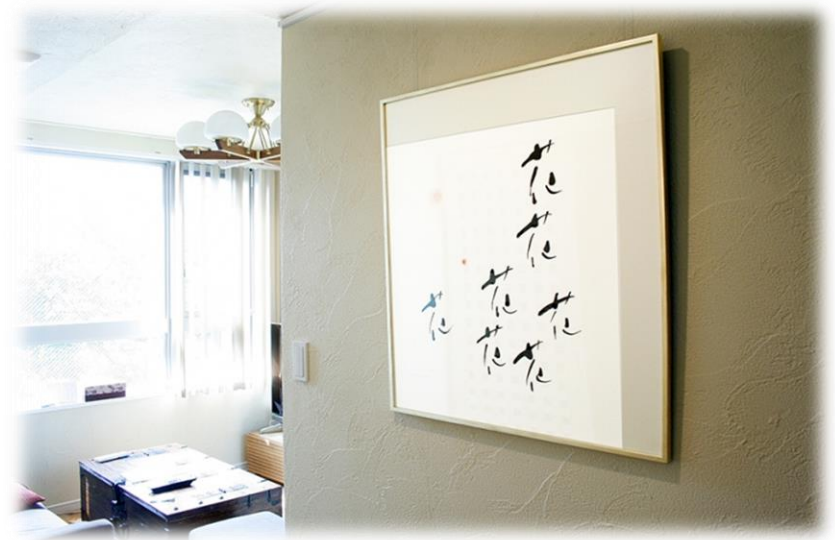 花
花
花
花 花
花
花